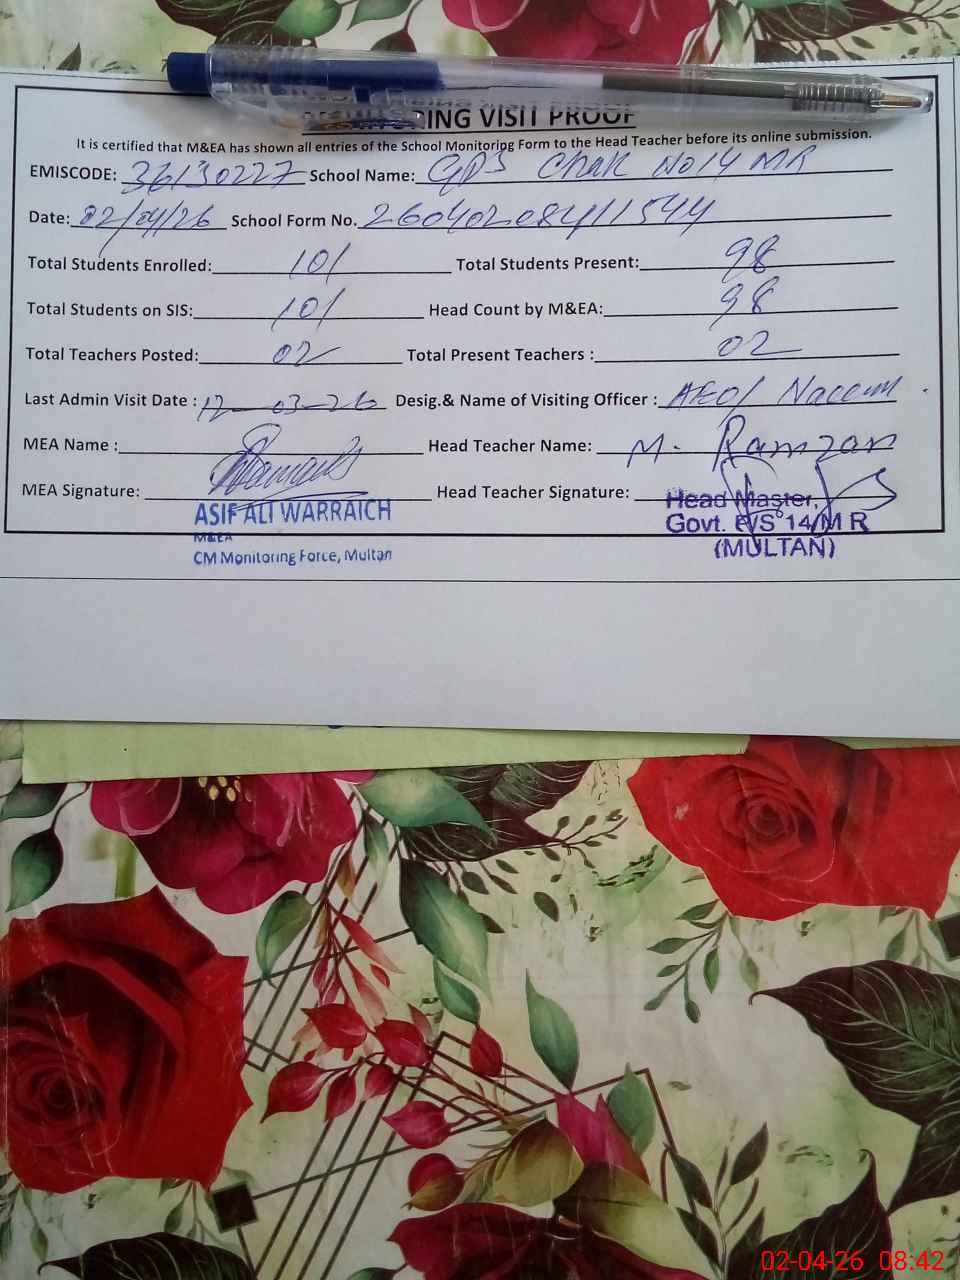 MONITORING VISIT PROOF
It is certified that M&EA has shown all entries of the School Monitoring Form to the Head Teacher before its online submission.
EMISCODE: 36130227 School Name: GPS Chak No 14 MR
Date: 02/04/26 School Form No. 260402084111544
Total Students Enrolled: 101 Total Students Present: 98
Total Students on SIS: 101 Head Count by M&EA: 98
Total Teachers Posted: 02 Total Present Teachers : 02
Last Admin Visit Date : 12-03-26 Desig.& Name of Visiting Officer : AEO/ Naeem
MEA Name : Head Teacher Name: M. Ramzan
MEA Signature: Head Teacher Signature:
ASIF ALI WARRAICH
M&EA
CM Monitoring Force, Multan
Head Master,
Govt. P/S 14/M R
(MULTAN)
02-04-26 08:42